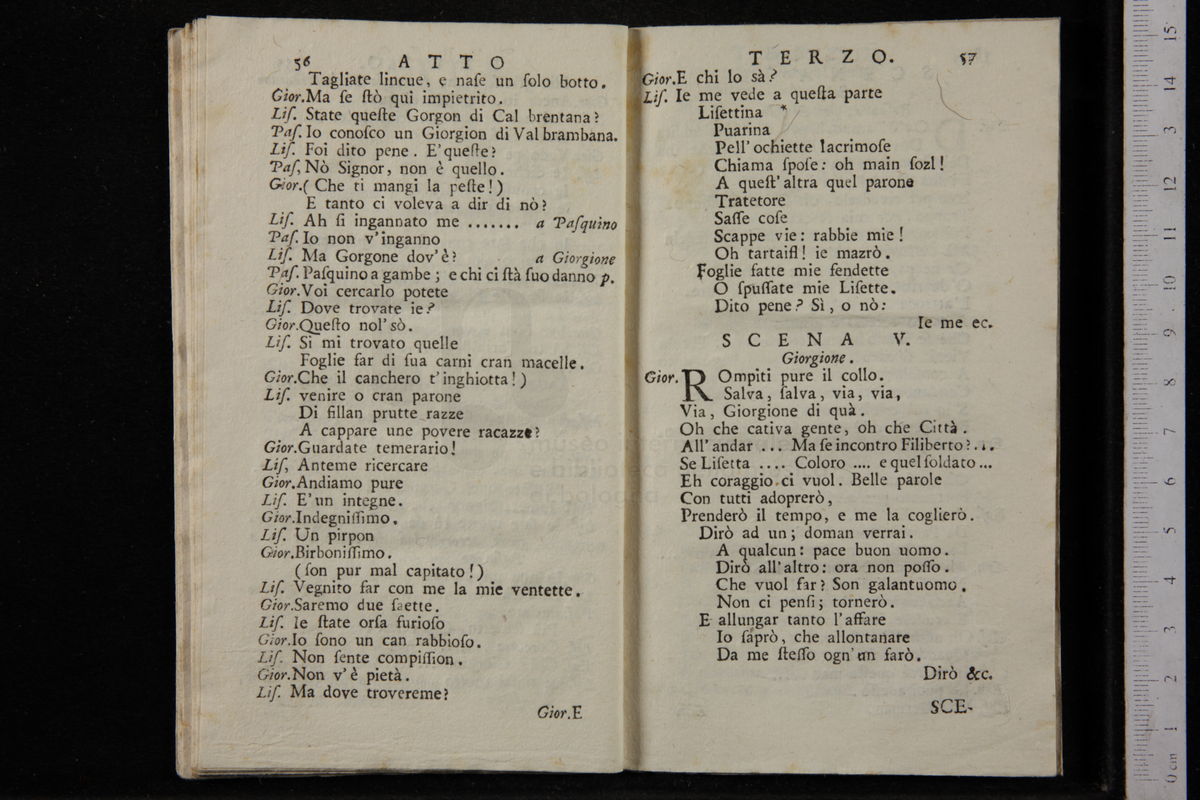 56 ATTO
Tagliate lincue, e naſe un ſolo botto.
Gior.Ma ſe ſtò qui impietrito.
Liſ. State queſte Gorgon di Cal brentana?
Paſ. Io conoſco un Giorgion di Val brambana.
Liſ. Foi dito pene. E' queſte?
Paſ, Nò Signor, non è quello.
Gior.( Che ti mangi la peſte!)
E tanto ci voleva a dir di nò?
Liſ. Ah ſi ingannato me ....... a Paſquino
Paſ. Io non v'inganno
Liſ. Ma Gorgone dov'è? a Giorgione
Paſ. Paſquino a gambe; e chi ci ſtà ſuo danno p.
Gior.Voi cercarlo potete
Liſ. Dove trovate ie?
Gior.Queſto nol' sò.
Liſ. Si mi trovato quelle
Foglie far di ſua carni cran macelle.
Gior.Che il canchero t'inghiotta!)
Liſ. venire o cran parone
Di fillan prutte razze
A cappare une povere racazze?
Gior.Guardate temerario!
Liſ, Anteme ricercare
Gior.Andiamo pure
Liſ. E' un integne.
Gior.Indegniſſimo.
Liſ. Un pirpon
Gior.Birboniſſimo.
(ſon pur mal capitato!)
Liſ. Vegnito far con me la mie ventette.
Gior.Saremo due ſaette.
Liſ. Ie ſtate orſa furioſo
Gior.Io ſono un can rabbioſo.
Liſ. Non ſente compiſſion.
Gior.Non v' è pietà.
Liſ. Ma dove trovereme?
Gior.E
TERZO. 57
Gior.E chi lo sà?
Liſ. Ie me vede a queſta parte
Liſettina *
Puarina
Pell' ochiette lacrimoſe
Chiama ſpoſe: oh main ſozl!
A queſt' altra quel parone
Tratetore
Saſſe coſe
Scappe vie: rabbie mie!
Oh tartaifl! ie mazrò.
Foglie fatte mie fendette
O ſpuſſate mie Liſette.
Dito pene? Sì, o nò:
Ie me ec.
SCENA V.
Giorgione.
Gior. ROmpiti pure il collo.
Salva, ſalva, via, via,
Via, Giorgione di quà.
Oh che cativa gente, oh che Città.
All' andar ... Ma ſe incontro Filiberto?...
Se Liſetta .... Coloro .... e quel ſoldato ...
Eh coraggio ci vuol. Belle parole
Con tutti adoprerò,
Prenderò il tempo, e me la coglierò.
Dirò ad un; doman verrai.
A qualcun: pace buon uomo.
Dirò all' altro: ora non poſſo.
Che vuol far? Son galantuomo.
Non ci penſi; tornerò.
E allungar tanto l'affare
Io ſaprò, che allontanare
Da me ſteſſo ogn' un farò.
Dirò &c.
SCE-